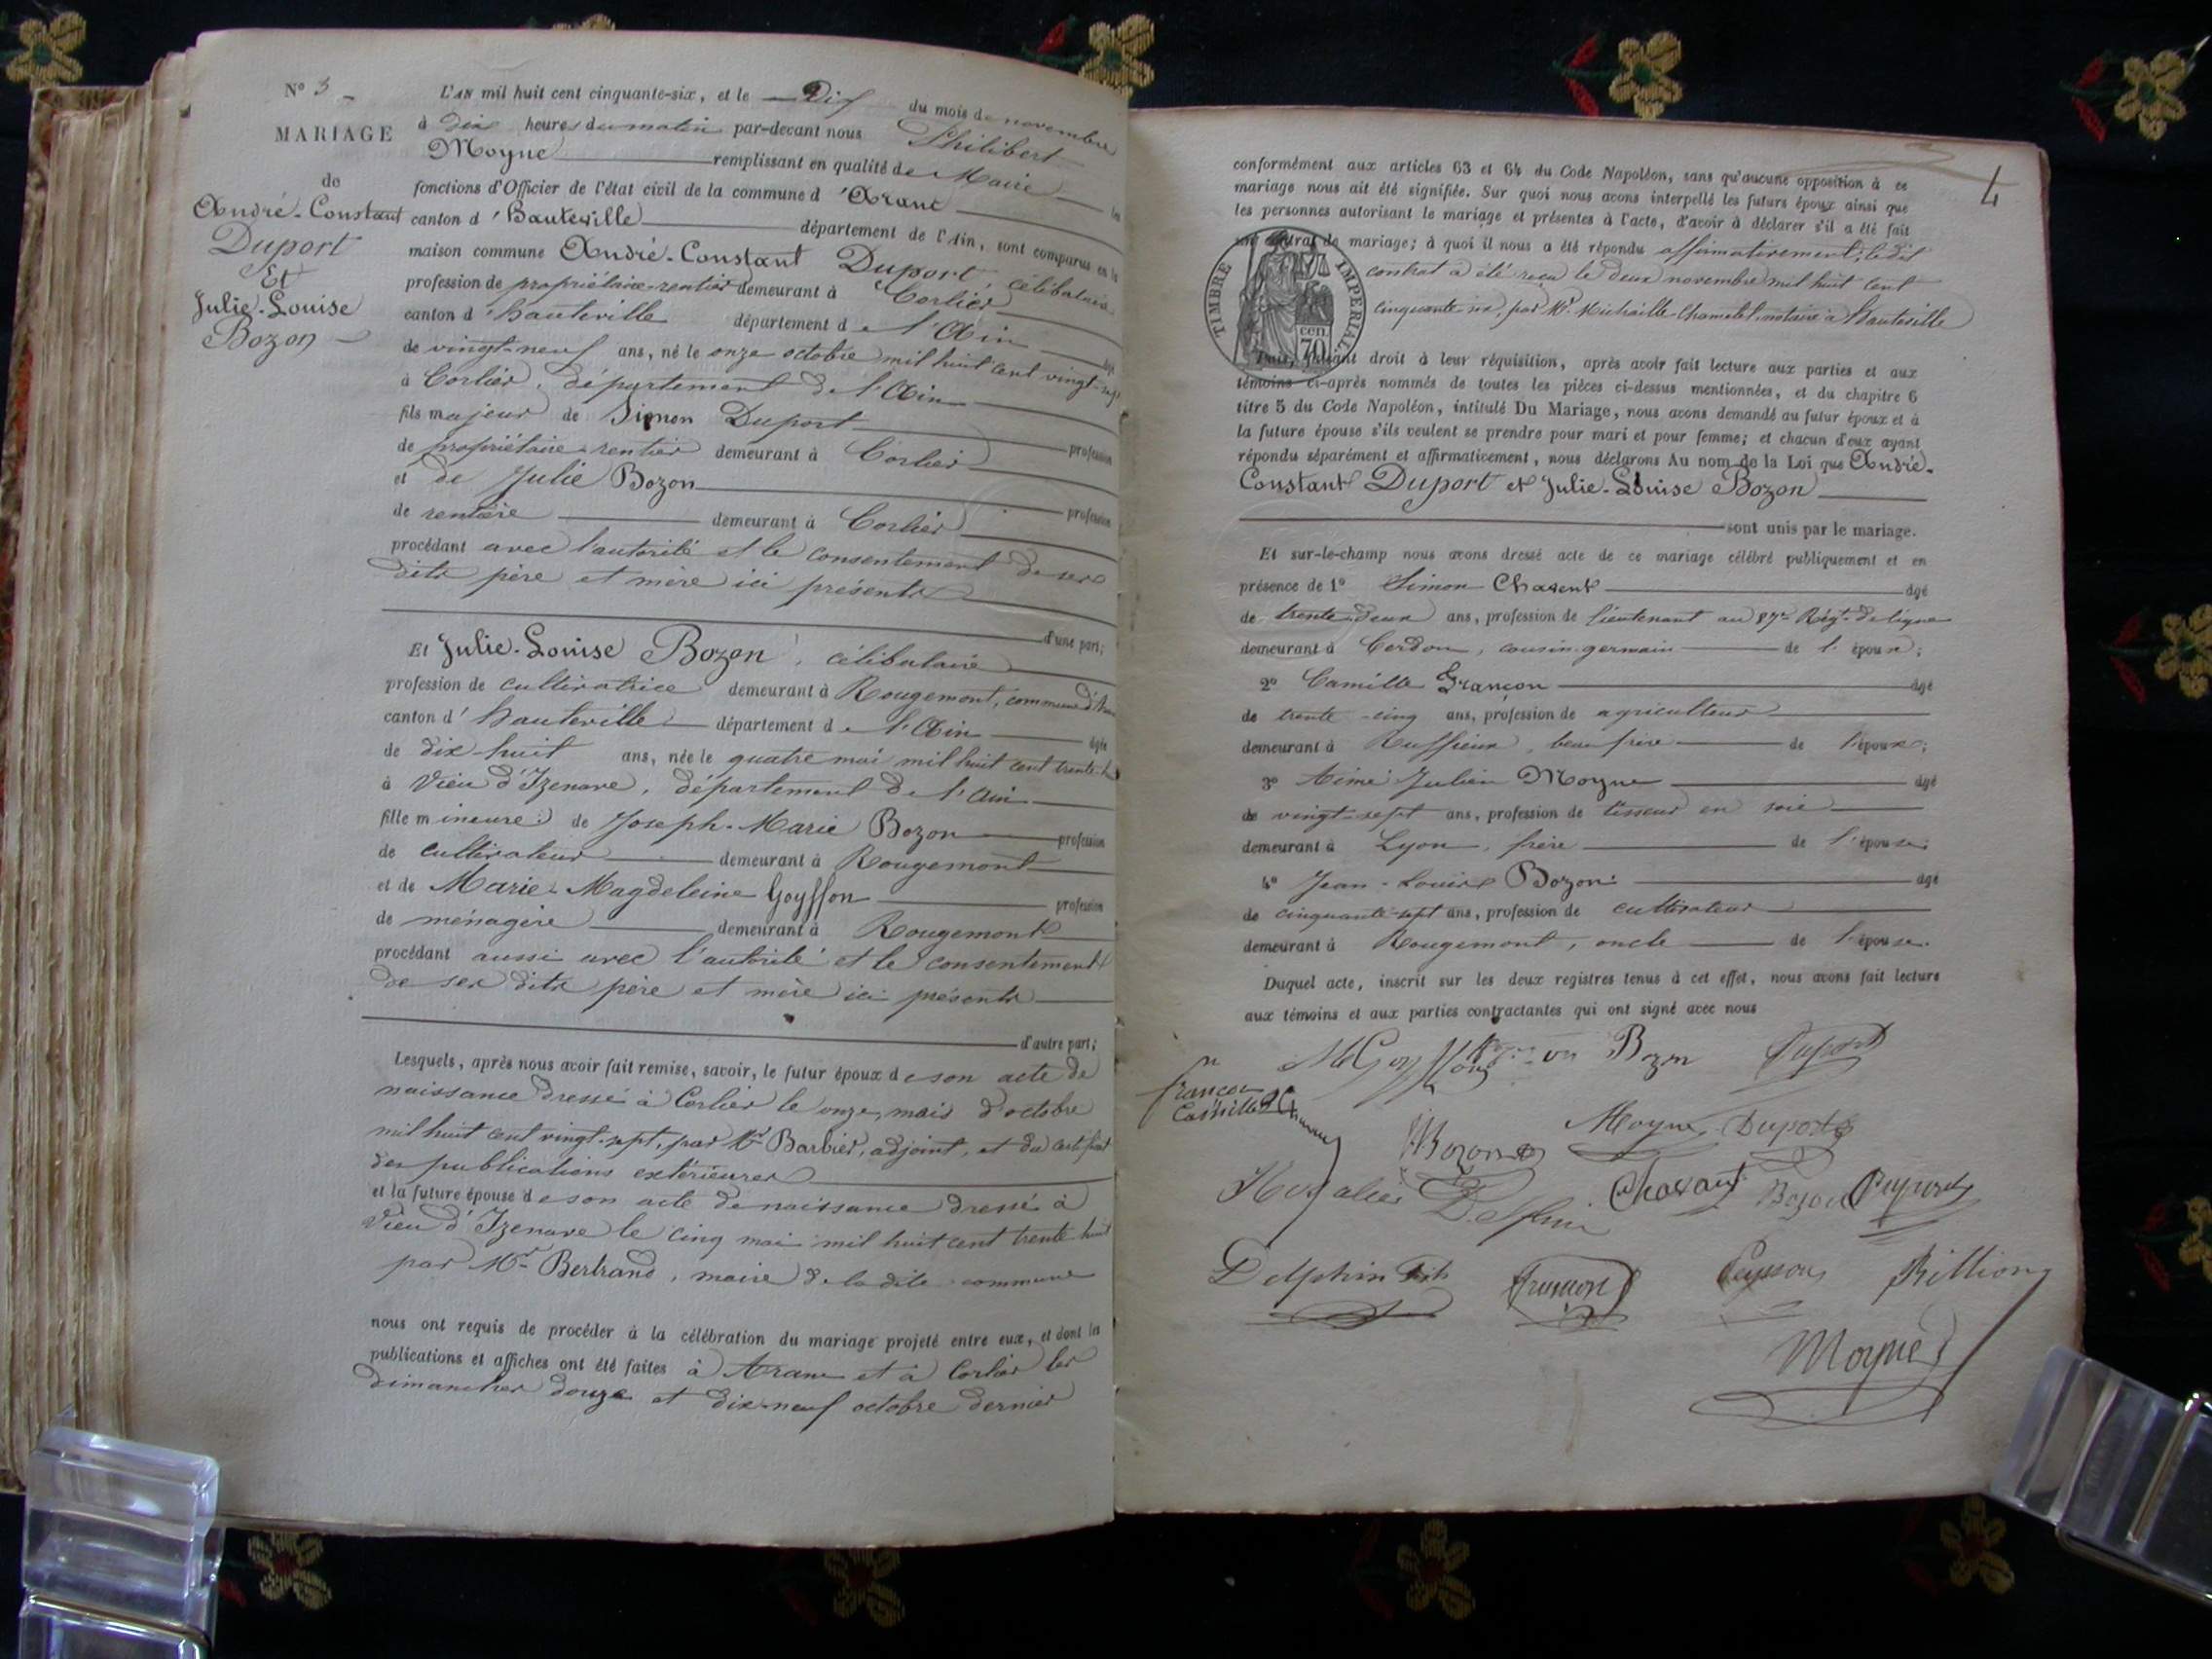 N° 3
MARIAGE
de
André-Constant
Duport
Et
Julie-Louise
Bozon
L'AN mil huit cent cinquante-six, et le Dix du mois de novembre
à dix heures du matin par-devant nous Philibert
Moyne remplissant en qualité de Maire les
fonctions d'Officier de l'état civil de la commune d'Aranc
canton d'Hauteville département de l'Ain, sont comparus en la
maison commune André-Constant Duport, célibataire
profession de propriétaire-rentier demeurant à Corlier
canton d'hauteville département de l'Ain âgé
de vingt-neuf ans, né le onze octobre mil huit cent vingt-sept
à Corlier, département de l'Ain
fils majeur de Simon Duport profession
de propriétaire-rentier demeurant à Corlier
et de Julie Bozon profession
de rentière demeurant à Corlier
procédant avec l'autorité et le consentement de ses
dits père et mère ici présents
d'une part;
Et Julie-Louise Bozon, célibataire
profession de cultivatrice demeurant à Rougemont, commune d'
canton d'hauteville département de l'Ain âgée
de dix-huit ans, née le quatre mai mil huit cent trente-h
à Vieu d'Izenave, département de l'Ain
fille mineure de Joseph-Marie Bozon profession
de cultivateur demeurant à Rougemont
et de Marie-Magdeleine Goyffon profession
de ménagère demeurant à Rougemont
procédant aussi avec l'autorité et le consentement
de ses dits père et mère ici présents
d'autre part;
Lesquels, après nous avoir fait remise, savoir, le futur époux de son acte de
naissance dressé à Corlier le onze, mois d'octobre
mil huit cent vingt-sept, par Mr Barbier, adjoint, et du certificat
des publications extérieures
et la future épouse de son acte de naissance dressé à
Vieu d'Izenave le cinq mai mil huit cent trente huit
par Mr Bertrand, maire de la dite commune
nous ont requis de procéder à la célébration du mariage projeté entre eux, et dont les
publications et affiches ont été faites à Aranc et à Corlier les
dimanches douze et dix-neuf octobre dernier
4
conformément aux articles 63 et 64 du Code Napoléon, sans qu'aucune opposition à ce
mariage nous ait été signifiée. Sur quoi nous avons interpellé les futurs époux ainsi que
les personnes autorisant le mariage et présentes à l'acte, d'avoir à déclarer s'il a été fait
un contrat de mariage; à quoi il nous a été répondu affirmativement; le dit
contrat a été reçu le deux novembre mil huit cent
cinquante six, par Mr. Michaille Chamelet notaire à hauteville
TIMBRE IMPERIAL
70 cen.
Puis, faisant droit à leur réquisition, après avoir fait lecture aux parties et aux
témoins ci-après nommés de toutes les pièces ci-dessus mentionnées, et du chapitre 6
titre 5 du Code Napoléon, intitulé Du Mariage, nous avons demandé au futur époux et à
la future épouse s'ils veulent se prendre pour mari et pour femme; et chacun d'eux ayant
répondu séparément et affirmativement, nous déclarons Au nom de la Loi que André-
Constant Duport et Julie-Louise Bozon
sont unis par le mariage.
Et sur-le-champ nous avons dressé acte de ce mariage célébré publiquement et en
présence de 1° Simon Chavent âgé
de trente-deux ans, profession de lieutenant au 87me Régt de ligne
demeurant à Cerdon, cousin-germain de l'époux;
2° Camille Françon âgé
de trente-cinq ans, profession de agriculteur
demeurant à Ruffieux, beau frère de l'époux;
3° Aimé Julien Moyne âgé
de vingt-sept ans, profession de tisseur en soie
demeurant à Lyon, frère de l'épouse;
4° Jean-Louis Bozon âgé
de cinquante-sept ans, profession de cultivateur
demeurant à Rougemont, oncle de l'épouse.
Duquel acte, inscrit sur les deux registres tenus à cet effet, nous avons fait lecture
aux témoins et aux parties contractantes qui ont signé avec nous
M Goyffon Bozon Duport
françon
Camille
Bozon Moyne Duport
Delphin Chavant Bozon Duport
Delphin Françon Billion
Moyne